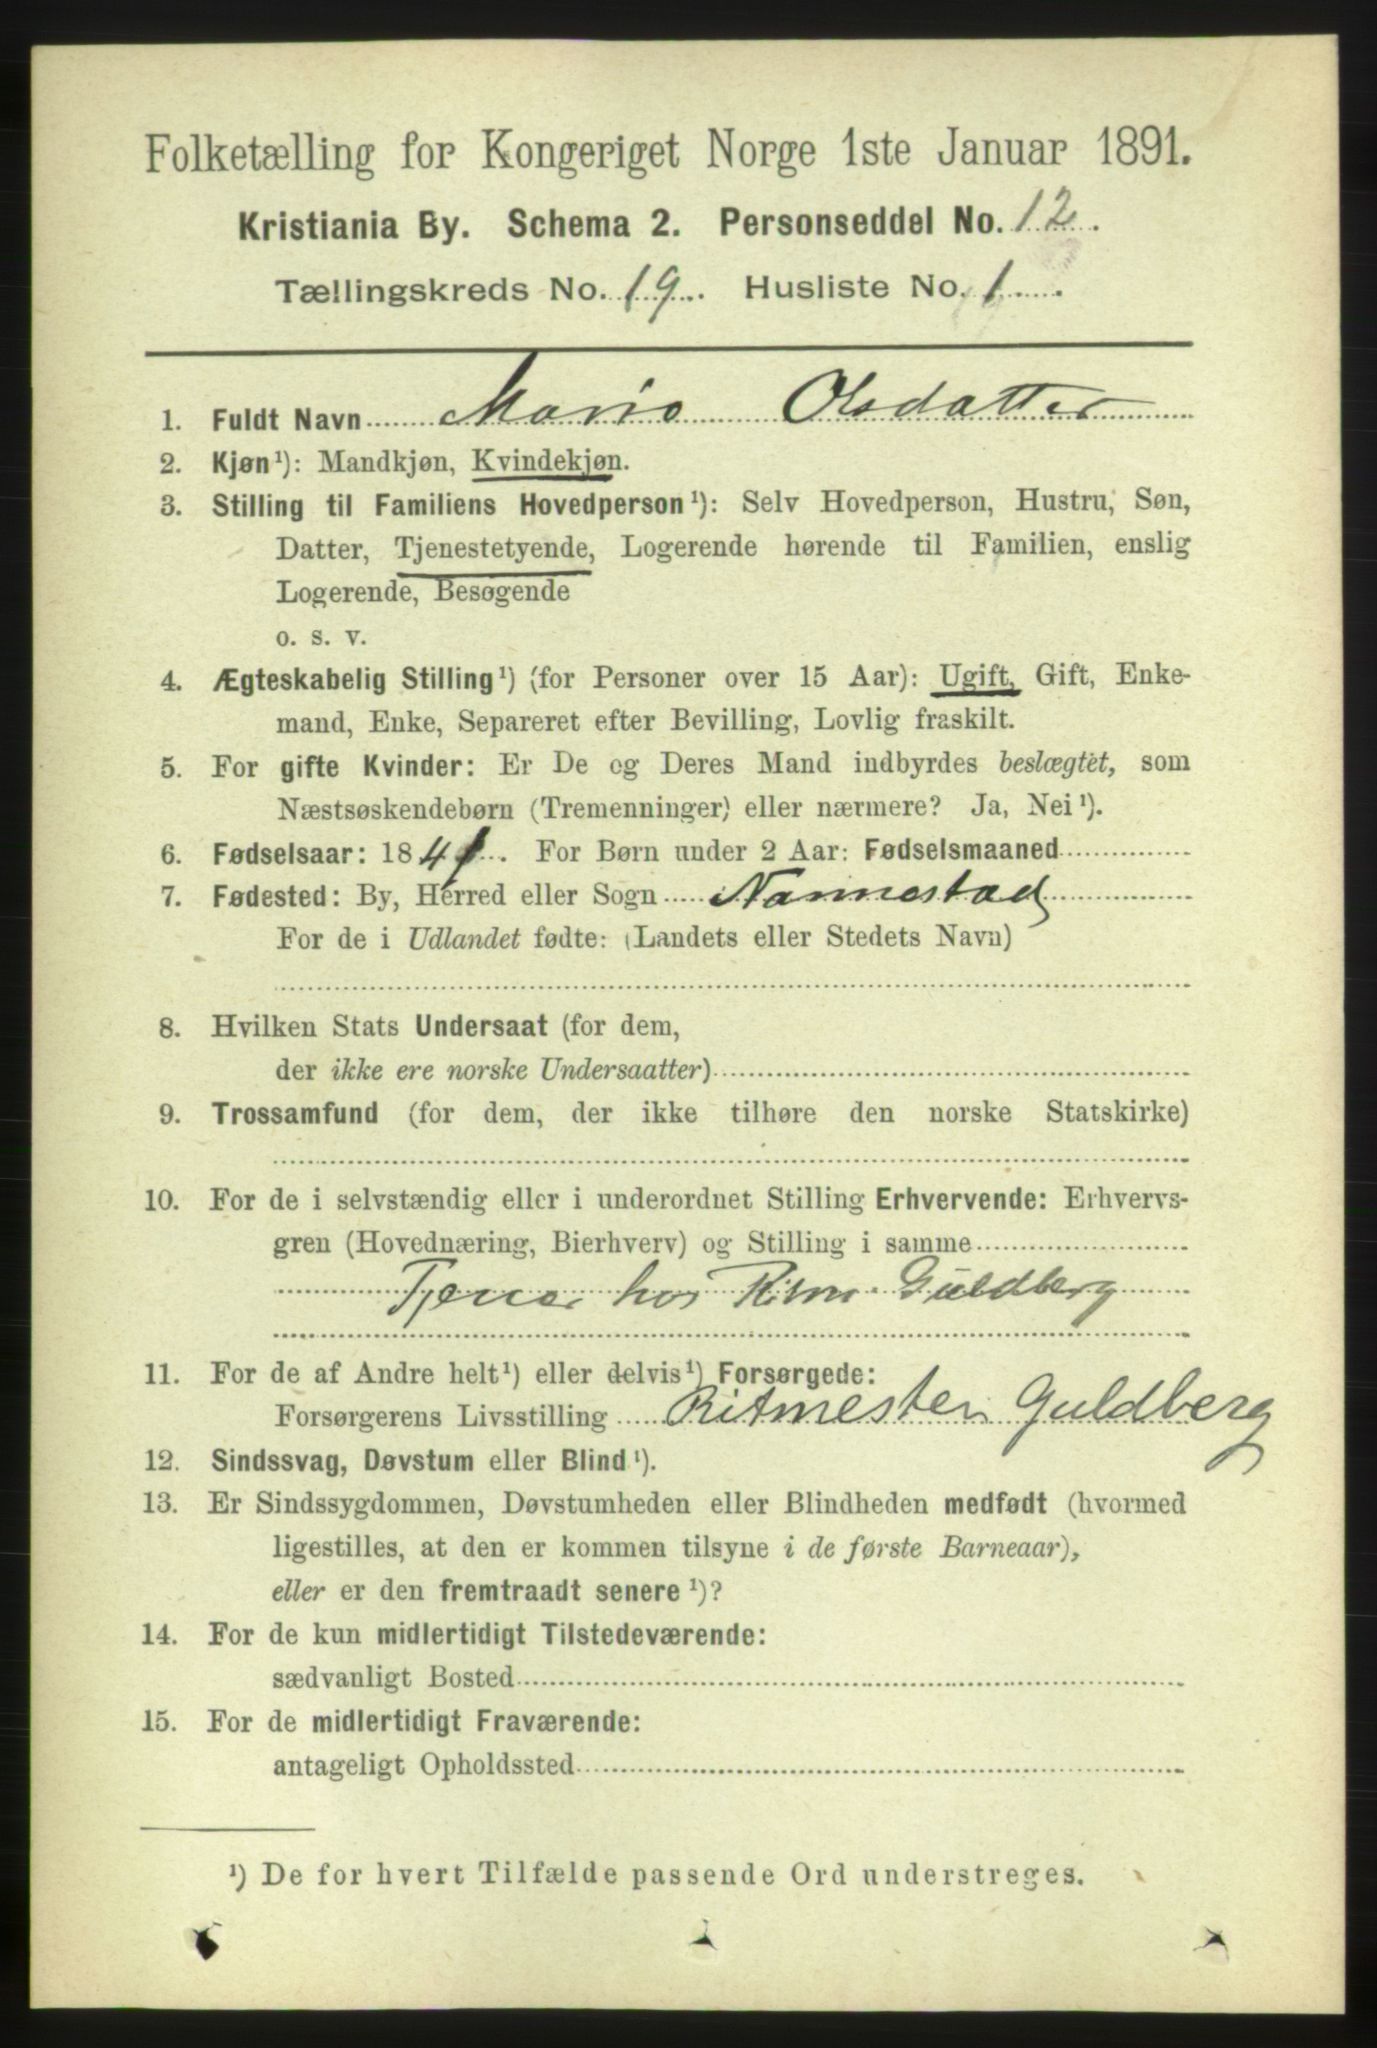 Folketælling for Kongeriget Norge 1ste Januar 1891.
Kristiania By. Schema 2. Personseddel No. 12.
Tællingskreds No. 19. Husliste No. 1
1. Fuldt Navn Maria Olsdatter
2. Kjøn¹): Mandkjøn, Kvindekjøn.
3. Stilling til Familiens Hovedperson¹): Selv Hovedperson, Hustru, Søn,
Datter, Tjenestetyende, Logerende hørende til Familien, enslig
Logerende, Besøgende
o. s. v.
4. Ægteskabelig Stilling¹) (for Personer over 15 Aar): Ugift, Gift, Enke-
mand, Enke, Separeret efter Bevilling, Lovlig fraskilt.
5. For gifte Kvinder: Er De og Deres Mand indbyrdes beslægtet, som
Næstsøskendebørn (Tremenninger) eller nærmere? Ja, Nei¹).
6. Fødselsaar: 1841. For Børn under 2 Aar: Fødselsmaaned
7. Fødested: By, Herred eller Sogn Nannestad
For de i Udlandet fødte: (Landets eller Stedets Navn)
8. Hvilken Stats Undersaat (for dem,
der ikke ere norske Undersaatter)
9. Trossamfund (for dem, der ikke tilhøre den norske Statskirke)
10. For de i selvstændig eller i underordnet Stilling Erhvervende: Erhvervs-
gren (Hovednæring, Bierhverv) og Stilling i samme
Tjener hos Ritm. Guldberg
11. For de af Andre helt¹) eller delvis¹) Forsørgede:
Forsørgerens Livsstilling Ritmester Guldberg
12. Sindssvag, Døvstum eller Blind¹).
13. Er Sindssygdommen, Døvstumheden eller Blindheden medfødt (hvormed
ligestilles, at den er kommen tilsyne i de første Barneaar),
eller er den fremtraadt senere¹)?
14. For de kun midlertidigt Tilstedeværende:
sædvanligt Bosted
15. For de midlertidigt Fraværende:
antageligt Opholdssted
¹) De for hvert Tilfælde passende Ord understreges.